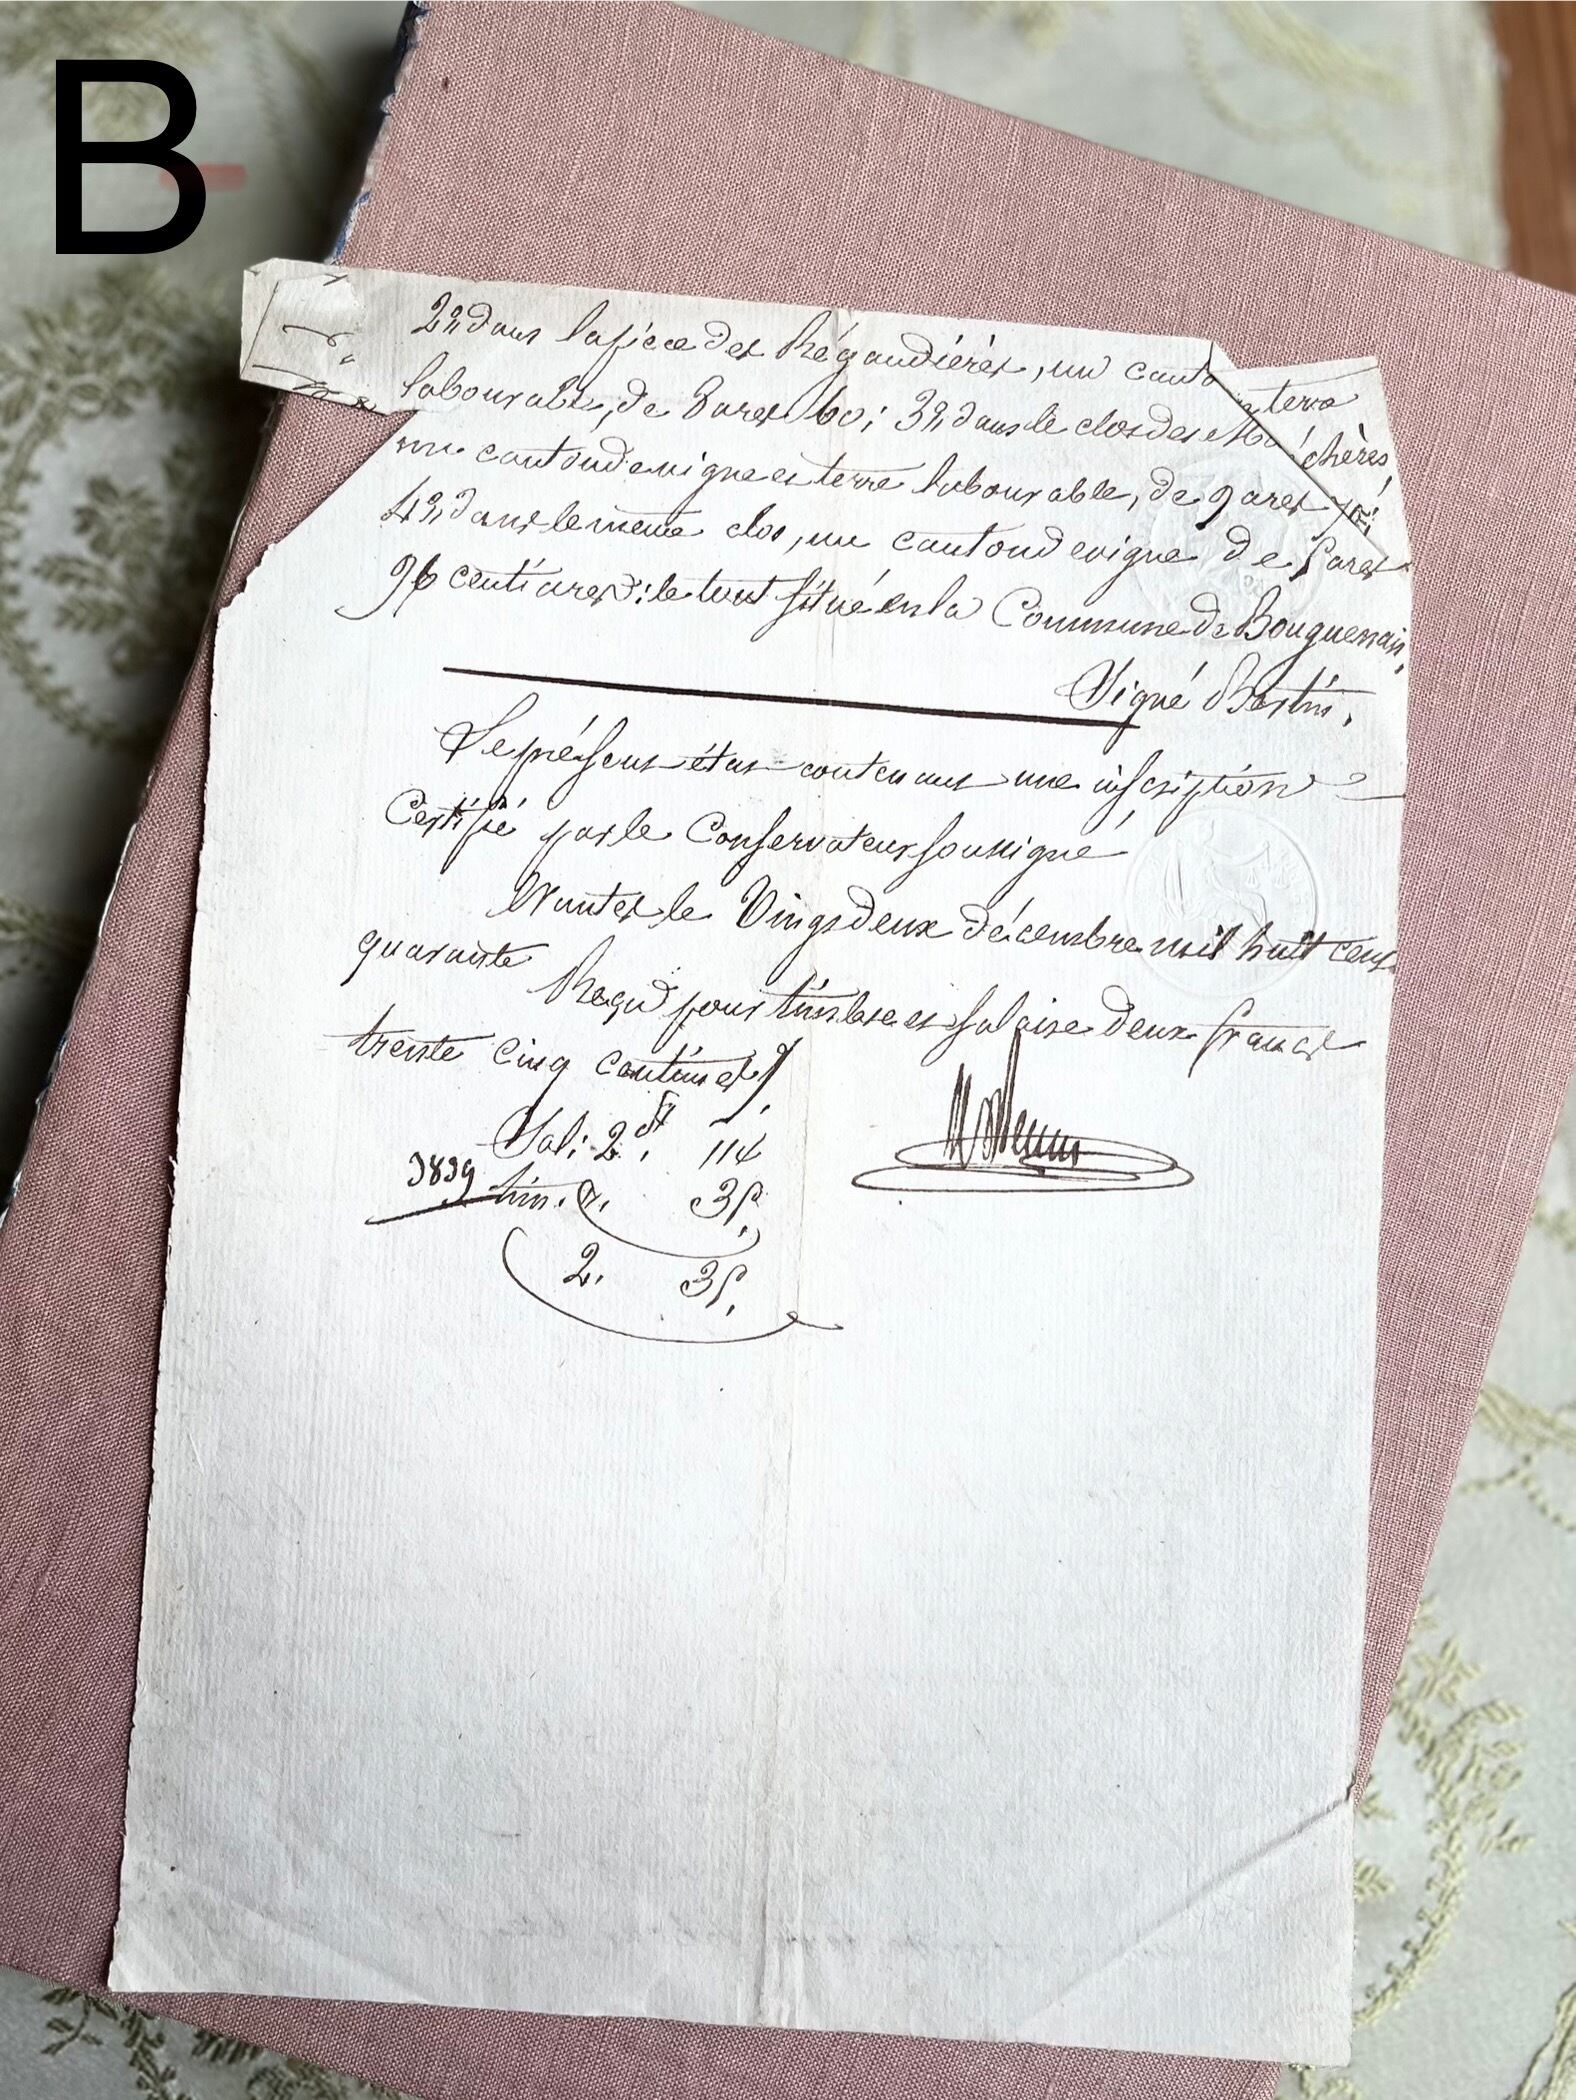 B
2°, dans la pièce des Régaudières, un canto terre
labourable, de 8 ares 60; 3°, dans le clos des chères,
un canton de vigne et terre labourable, de 9 ares
4°, dans le même clos, un canton de vigne de 5 ares
96 centiares: le tout situé en la Commune de Bouguenais,
Signé Bertin.
Le présent état contenant une inscription
Certifié par le Conservateur soussigné
Nantes le Vingt deux décembre mil huit cent
quarante
Reçu pour timbre et salaire deux francs
trente cinq centimes
Sal: 2.
3839 tim. 35.
2. 35.